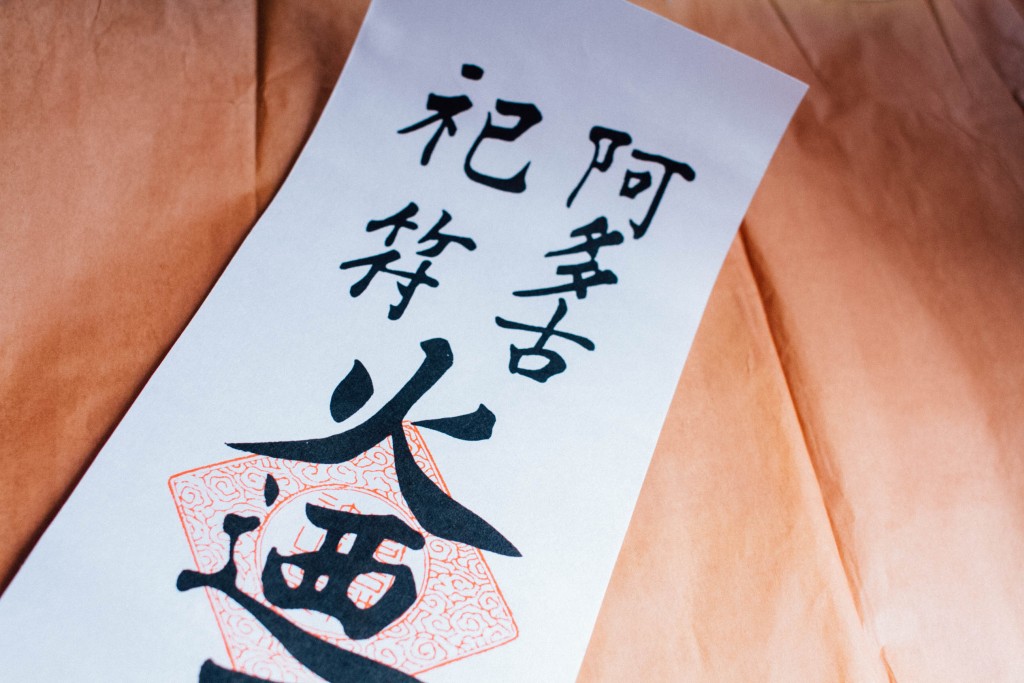 阿多古
祀符
火迺